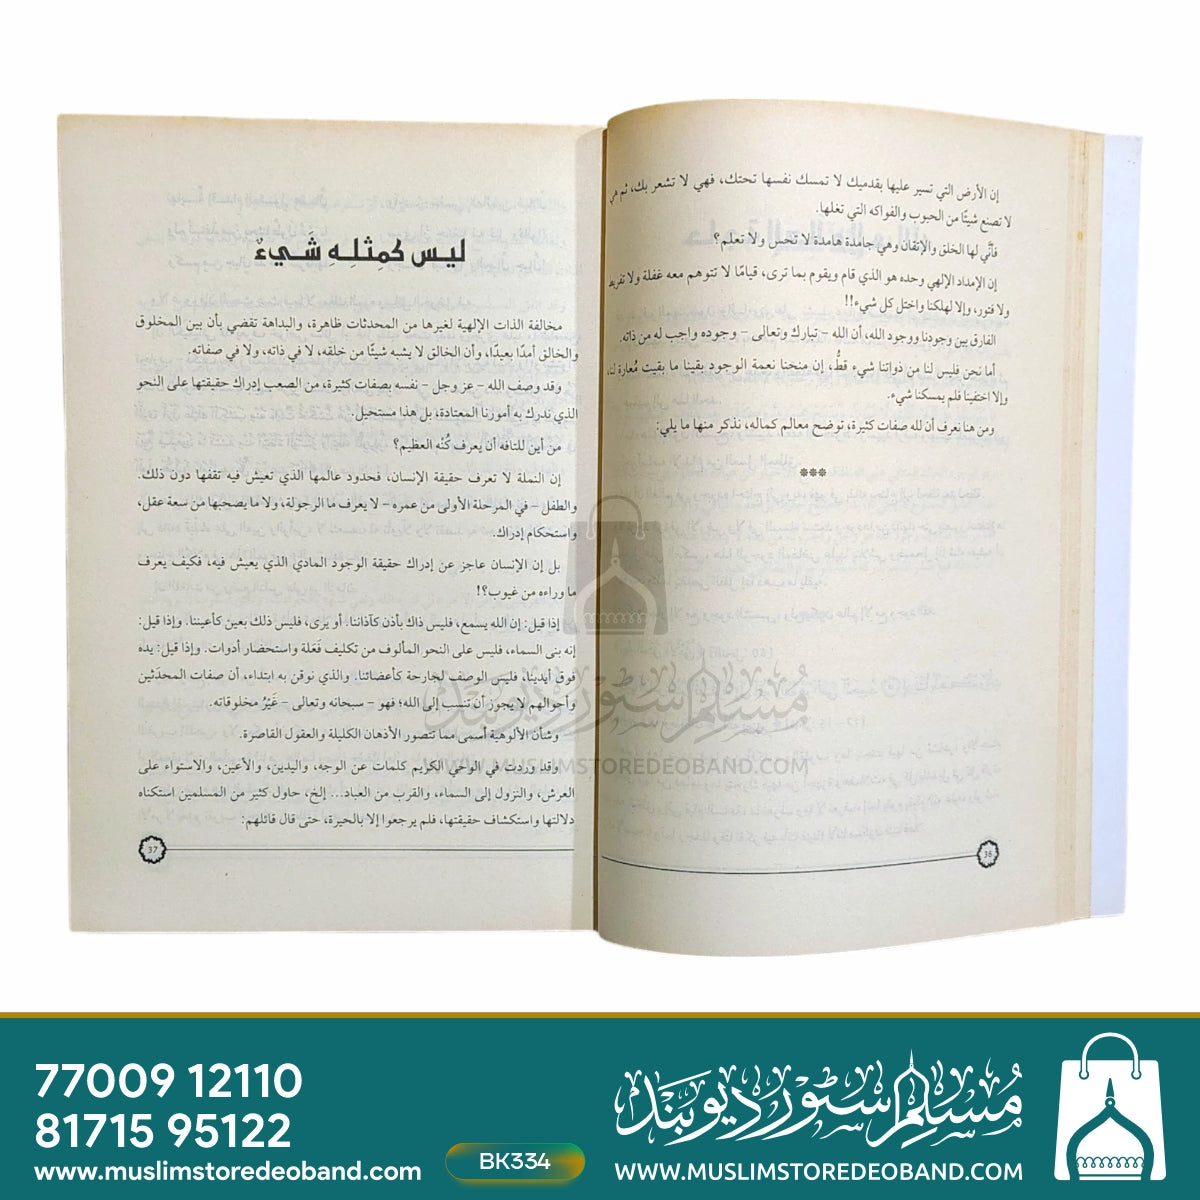 إن الأرض التي تسير عليها بقدميك لا تمسك نفسها تحتك، فهي لا تشعر بك، ثم هي
لا تصنع شيئًا من الحبوب والفواكه التي تغلها.
فأنَّى لها الخلق والإتقان وهي جامدة هامدة لا تحس ولا تعلم؟
إن الإمداد الإلهي وحده هو الذي قام ويقوم بما ترى، قيامًا لا تتوهم معه غفلة ولا تفريط
ولا فتور، وإلا لهلكنا واختل كل شيء!!
الفارق بين وجودنا ووجود الله، أن الله – تبارك وتعالى – وجوده واجب له من ذاته.
أما نحن فليس لنا من ذواتنا شيء قطُّ، إن منحنا نعمة الوجود بقينا ما بقيت مُعارة لنا،
وإلا اختفينا فلم يمسكنا شيء.
ومن هنا نعرف أن لله صفات كثيرة، توضح معالم كماله، نذكر منها ما يلي:
***
36
ليس كمثلِهِ شَيءٌ
مخالفة الذات الإلهية لغيرها من المحدثات ظاهرة، والبداهة تقضي بأن بين المخلوق
والخالق أمدًا بعيدًا، وأن الخالق لا يشبه شيئًا من خلقه، لا في ذاته، ولا في صفاته.
وقد وصف الله – عز وجل – نفسه بصفات كثيرة، من الصعب إدراك حقيقتها على النحو
الذي ندرك به أمورنا المعتادة، بل هذا مستحيل.
من أين للتافه أن يعرف كُنْه العظيم؟
إن النملة لا تعرف حقيقة الإنسان، فحدود عالمها الذي تعيش فيه تقفها دون ذلك.
والطفل – في المرحلة الأولى من عمره – لا يعرف ما الرجولة، ولا ما يصحبها من سعة عقل،
واستحكام إدراك.
بل إن الإنسان عاجز عن إدراك حقيقة الوجود المادي الذي يعيش فيه، فكيف يعرف
ما وراءه من غيوب؟!
إذا قيل: إن الله يسمع، فليس ذاك بأذن كآذاننا. أو يرى، فليس ذلك بعين كأعيننا. وإذا قيل:
إنه بنى السماء، فليس على النحو المألوف من تكليف فَعَلة واستحضار أدوات. وإذا قيل: يده
فوق أيدينا، فليس الوصف لجارحة كأعضائنا. والذي نوقن به ابتداء، أن صفات المحدَثين
وأحوالهم لا يجوز أن تنسب إلى الله؛ فهو – سبحانه وتعالى – غَيْرُ مخلوقاته.
وشأن الألوهية أسمى مما تتصور الأذهان الكليلة والعقول القاصرة.
وقد وردت في الوحي الكريم كلمات عن الوجه، واليدين، والأعين، والاستواء على
العرش، والنزول إلى السماء، والقرب من العباد... إلخ، حاول كثير من المسلمين استكناه
دلالتها واستكشاف حقيقتها، فلم يرجعوا إلا بالحيرة، حتى قال قائلهم:
37
مُسلم سٹور دیوبند
WWW.MUSLIMSTOREDEOBAND.COM
77009 12110
81715 95122
www.muslimstoredeoband.com
BK334
مُسلم سٹور دیوبند
WWW.MUSLIMSTOREDEOBAND.COM